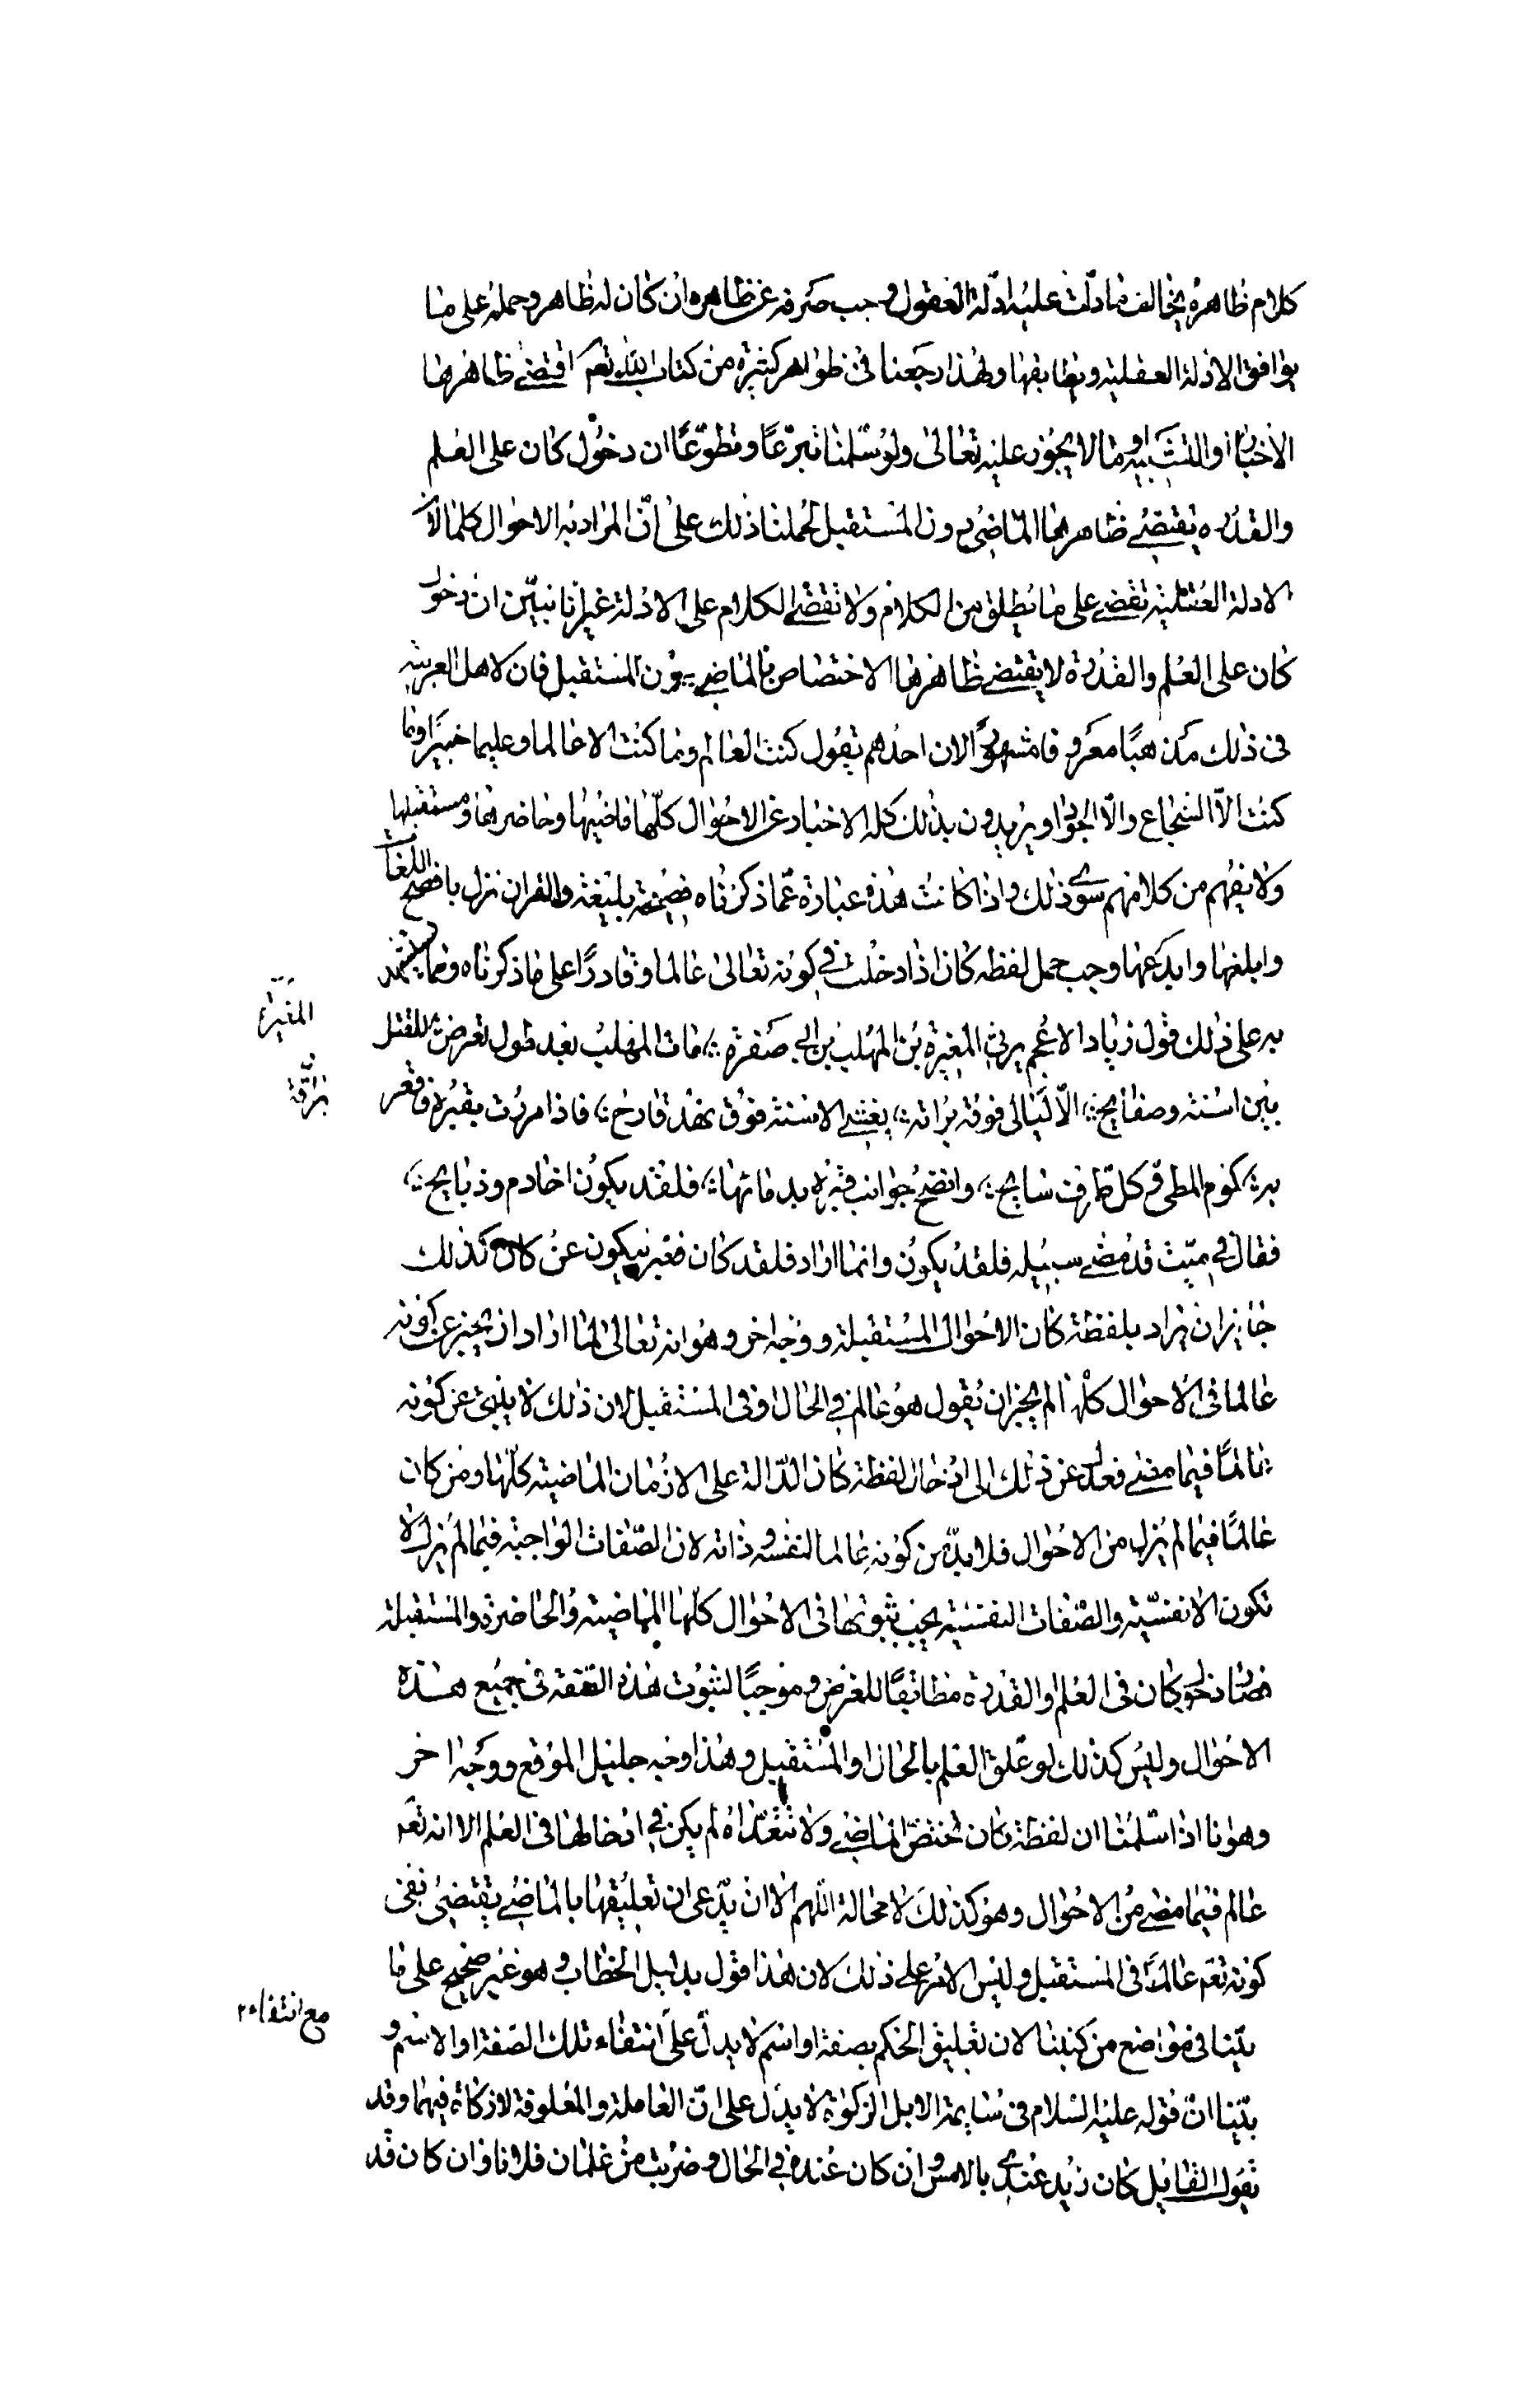 كلام ظاهره يخالف ما دلّت عليه ادلّة العقول وجب صرفه عن ظاهره ان كان له ظاهر وحمله على ما
يوافق الادلة العقلية ويطابقها ولهذا رجعنا في ظواهر كثيرة من كتاب الله تعم اقتضى ظاهرها
الاجبار او التشبيه او ما لا يجوز عليه تعالى ولو سلمنا تبرّعًا وتطوّعًا ان دخول كان على العلم
والقدرة يقتضي ظاهرها الماضي دون المستقبل لحملنا ذلك على انّ المراد به الاحوال كلها لان
الادلة العقلية تقضي على ما يطلق من الكلام ولا تقضى الكلام على الادلة غير انا نبيّن ان دخول
كان على العلم والقدرة لا يقتضي ظاهرها الاختصاص بالماضي دون المستقبل فان لاهل العربية
في ذلك مذهبًا معروفا مشهورًا لان احدهم يقول كنت العالم وما كنت الا عالما وعليما خبيرًا وما
كنت الّا الشجاع والّا الجواد ويريدون بذلك كله الاخبار عن الاحوال كلّها ماضيها وحاضرها ومستقبلها
ولا يفهم من كلامهم سوى ذلك واذا كانت هذه عبارة عمّا ذكرناه فصيحة بليغة والقران نزل بافصح اللغات
وابلغها وابدعها وجب حمل لفظه كان اذا دخلت في كونه تعالى عالما وقادرًا على ما ذكرناه ومما يستشهد
به على ذلك قول زياد الاعجم يرثي المغيرة بن المهلب بن ابي صفرة ؛ مات المهلب بعد طول تعرض ؛ للقتل
المغيرة
بين اسنة وصفايح ؛ الّا ليالى فوقه بزاته ؛ يغشى الاسنة فوق نهد قارح ؛ فاذا مررت بقبره فاعقر
بزّته
به ؛ كوم المطي وكل طرف سابح ؛ وانضح جوانب قبره بدمائها ؛ فلقد يكون اخا دم وذبايح ؛
فقال في ميّت قد مضى سبيله فلقد يكون وانما اراد فلقد كان فعبر بيكون عن كان كذلك
جايز ان يراد بلفظة كان الاحوال المستقبلة ووجه اخر وهو انه تعالى لما اراد ان يخبر عن كونه
عالما في الاحوال كلها لم يجز ان يقول هو عالم في الحال او في المستقبل لان ذلك لا ينبئ عن كونه
عالمًا فيما مضى فعدل عن ذلك الى ادخال لفظة كان الدّالة على الازمان الماضية كلّها ومن كان
عالمًا فيما لم يزل من الاحوال فلا بدّ من كونه عالما لنفسه وذاته لان الصّفات الواجبة فيما لم يزل لا
تكون الا نفسيّة والصّفات النفسيّة يجب ثبوتها في الاحوال كلّها الماضية والحاضرة والمستقبلة
فصار دخول كان في العلم او القدرة مطابقًا للغرض وموجبًا لثبوت هذه الصّفة في جميع هذه
الاحوال وليس كذلك لو علّق العلم بالحال او المستقبل وهذا وجه جليل الموقع ووجه اخر
وهو انا اذا سلّمنا ان لفظة كان تختصّ الماضي ولا تتعدّاه لم يكن في ادخالها في العلم الا انه تعم
عالم فيما مضى من الاحوال وهو كذلك لا محالة اللّهم الا ان يدّعى ان تعليقها بالماضي يقتضي نفى
كونه تعم عالمًا في المستقبل وليس الامر على ذلك لان هذا قول بدليل الخطاب وهو غير صحيح على ما
بيّنا في مواضع من كتبنا لان تعليق الحكم بصفة او اسم لا يدلّ على انتفاء تلك الصّفة او الاسم و
مع انتفاء ٢
بيّنا انّ قوله عليه السلام في سايمة الابل الزكوة لا يدل على انّ العاملة والمعلوفة لا زكاة فيهما وقد
يقول القايل كان زيد عندى بالامس وان كان عنده في الحال وضربت من غلمان فلانا وان كان قد